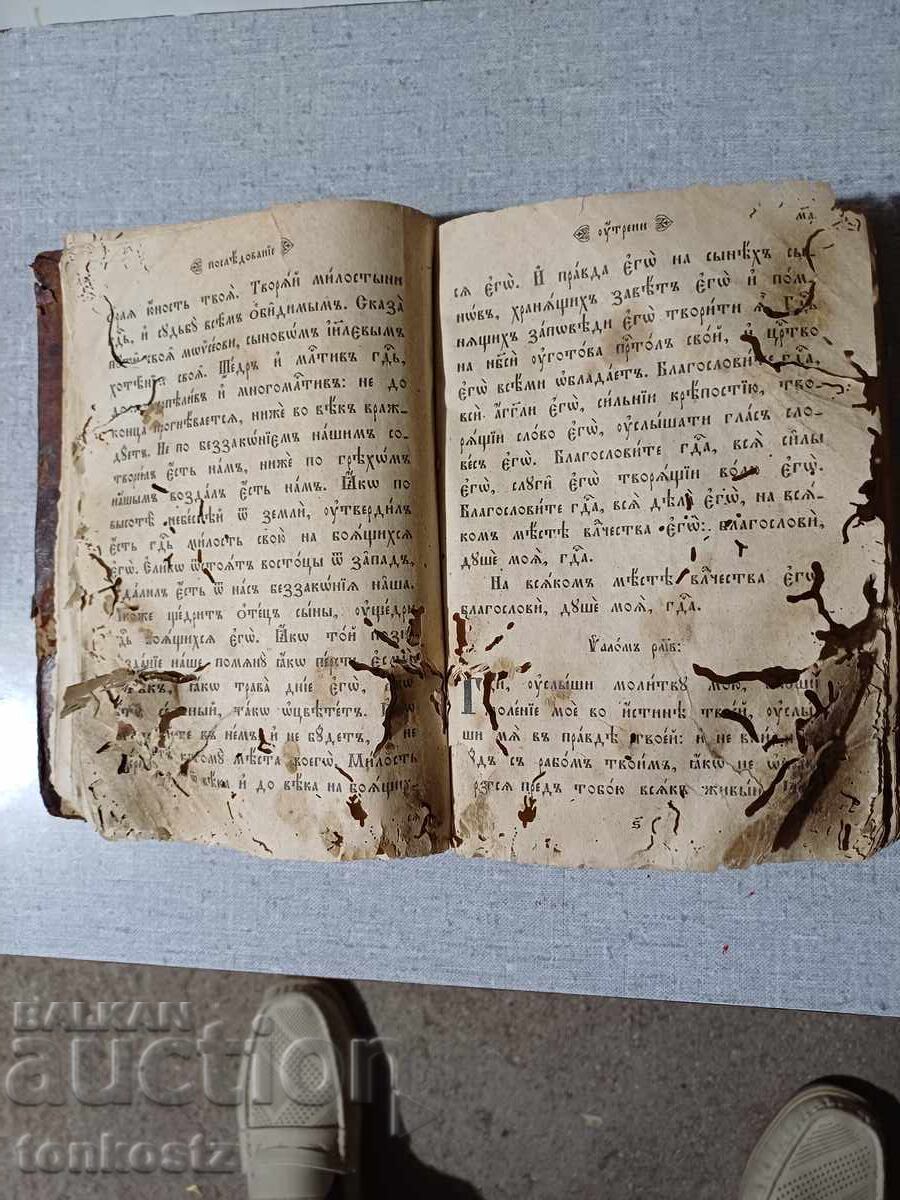 послѣдованїе
ꙗ ю҆́ность твоѧ̀. Творѧ́й ми́лостыни
гдⷭ҇ь, и҆ судьбꙋ̀ всѣ̑мъ ѡ҆би̑димымъ. Сказа̀
своѧ̑ мѡѷсе́ови, сыновѡ́мъ і҆и҃лєвымъ
хотѣ̑нїѧ своѧ̑. Ще́дръ и҆ млⷭ҇тивъ гдⷭ҇ь,
и҆ многомлⷭ҇тивъ: не до
конца̀ прогнѣ́ваетсѧ, нижѐ во вѣ́къ враж-
дꙋ́етъ. Не по беззако́нїємъ на́шымъ со-
твори́лъ є҆́сть на́мъ, нижѐ по грѣхѡ́мъ
на́шымъ возда́лъ є҆́сть на́мъ. Ꙗ҆́кѡ по
высотѣ̀ небе́снѣй ѿ землѝ, ᲂу҆тверди́лъ
є҆́сть гдⷭ҇ь ми́лость свою̀ на боѧ́щихсѧ
є҆гѡ̀. Є҆ли́кѡ ѿстоѧ́тъ восто́цы ѿ за́падъ,
ᲂу҆дали́лъ є҆́сть ѿ на́съ беззакѡ́нїѧ на̑ша.
ꙗ҆́коже ще́дритъ ѻ҆те́цъ сы́ны, ᲂу҆ще́дри
гдⷭ҇ь боѧ́щихсѧ є҆гѡ̀. Ꙗ҆́кѡ то́й позна̀
созда́нїе на́ше, помѧнꙋ̀ ꙗ҆́кѡ пе́рсть є҆смы̀
ꙗ҆́кѡ трава̀ дні́е є҆гѡ̀,
та́кѡ ѡ҆цвѣте́тъ.
въ не́мъ, и҆ не бꙋ́детъ, не
мѣ́ста своегѡ̀. Ми́лость
ѿ вѣ́ка и҆ до вѣ́ка на боѧ́щих-
сѧ
ᲂу҆́трени
м҃а
сѧ є҆гѡ̀. И҆ пра́вда є҆гѡ̀ на сынѣ́хъ сы-
нѡ́въ, хранѧ́щихъ завѣ́тъ є҆гѡ̀ и҆ по́м-
нѧщихъ за́пѡвѣди є҆гѡ̀ твори́ти ѧ҆̀. Гдⷭ҇ь
на нб҃сѝ ᲂу҆гото́ва прⷭ҇то́лъ сво́й, и҆ црⷭ҇тво
є҆гѡ̀ всѣ́ми ѡ҆блада́етъ. Благослови́те гдⷭ҇а,
всѝ а҆́гг҃ли є҆гѡ̀, си́льнїи крѣ́постїю, тво-
рѧ́щїи сло́во є҆гѡ̀, ᲂу҆слы́шати гла́съ сло-
ве́съ є҆гѡ̀. Благослови́те гдⷭ҇а, всѧ̑ си̑лы
є҆гѡ̀, слꙋги̑ є҆гѡ̀ творѧ́щїи во́лю є҆гѡ̀.
Благослови́те гдⷭ҇а, всѧ̑ дѣла̀ є҆гѡ̀, на всѧ́-
комъ мѣ́стѣ влⷣчества є҆гѡ̀: благословѝ,
дꙋшѐ моѧ̀, гдⷭ҇а.
На всѧ́комъ мѣ́стѣ влⷣчества є҆гѡ̀
благословѝ, дꙋшѐ моѧ̀, гдⷭ҇а.
Ѱало́мъ рм҃в:
Гдⷭ҇и, ᲂу҆слы́ши моли́твꙋ мою̀, внꙋшѝ
моле́нїе моѐ во и҆́стинѣ твое́й, ᲂу҆слы-
ши мѧ̀ въ пра́вдѣ твое́й: и҆ не вни́ди въ
сꙋ́дъ съ рабо́мъ твои́мъ, ꙗ҆́кѡ не ѡ҆прав-
ди́тсѧ пред̾ тобо́ю всѧ́къ живы́й
ѕ҃
BALKAN
auction
tonkostz